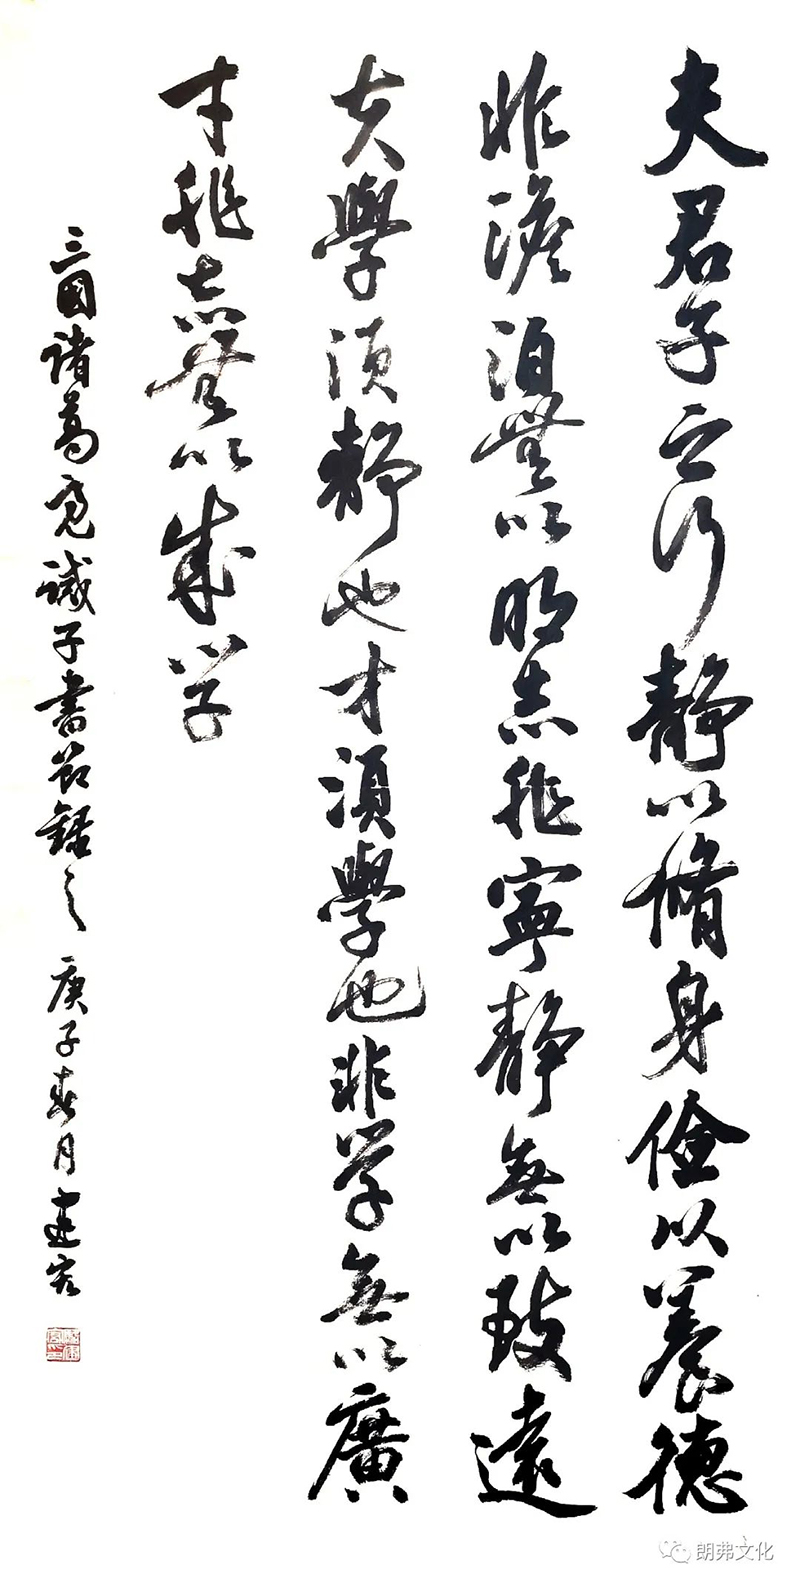 夫君子之行靜以脩身儉以養德
非澹泊無以明志非寧靜無以致遠
夫學須靜也才須學也非学無以廣
才非志無以成学
三國諸葛亮誡子書節錄之 庚子春月建宏
朗弗文化